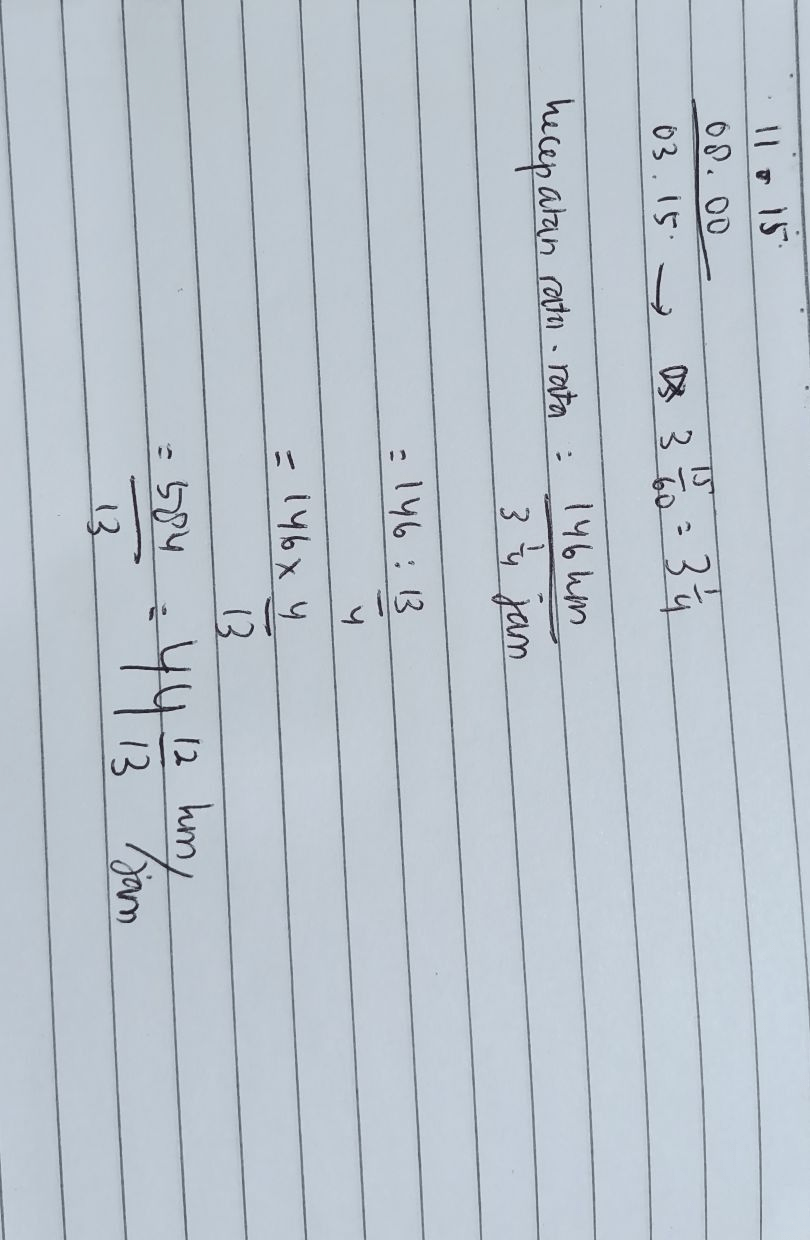 11.15
08.00
03.15. → 3 15/60 = 3 1/4
kecepatan rata-rata = 146 km
3 1/4 jam
= 146 : 13/4
= 146 x 4/13
= 584/13 = 44 12/13 km/jam